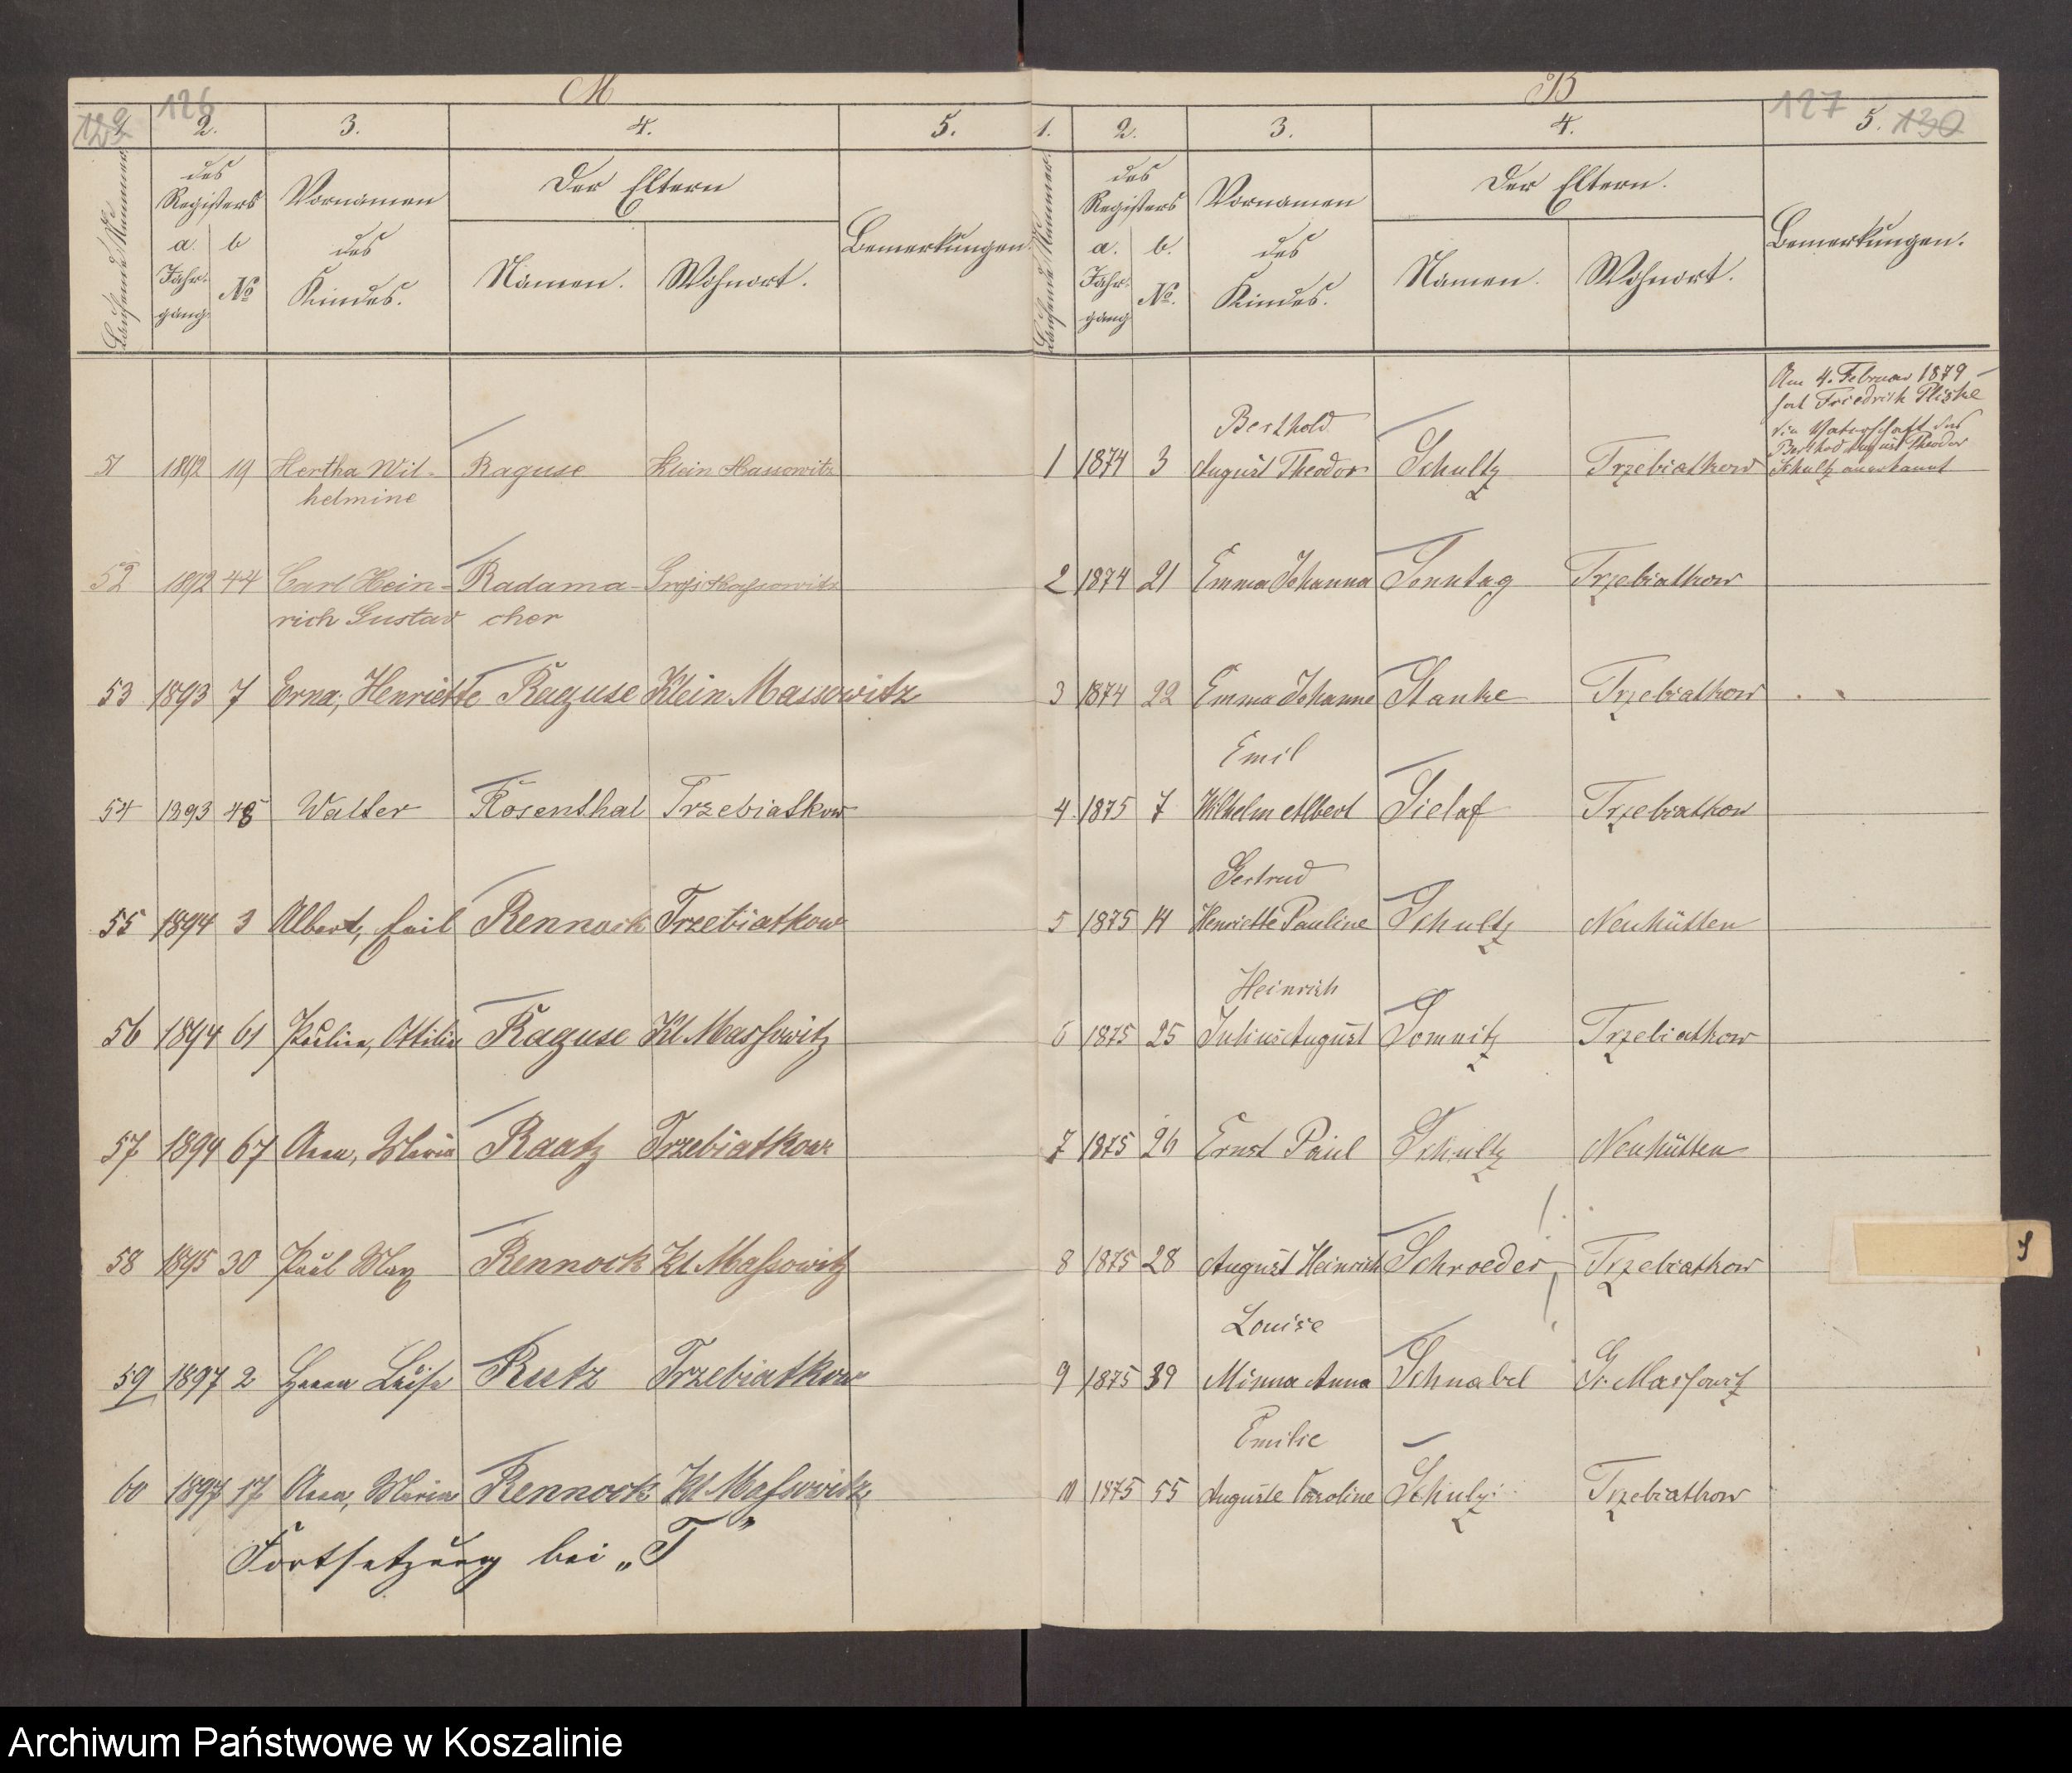 126
129
1. 2. 3. 4. 5.
Laufende Nummer
des Registers
a. Jahrgang
b №
Vornamen des Kindes.
Der Eltern
Namen. Wohnort.
Bemerkungen
51 1892 19 Hertha Wil- Raguse Klein Massowitz
helmine
52 1892 44 Carl Hein- Radama- Groß Massowitz
rich Gustav cher
53 1893 7 Erna, Henriette Raguse Klein Massowitz
54 1893 48 Walter Rosenthal Trzebiatkow
55 1894 3 Albert, Emil Rennock Trzebiatkow
56 1894 61 Paulina, Ottilie Raguse Kl Massowitz
57 1894 67 Anna, Maria Raatz Trzebiatkow
58 1895 30 Paul Max Rennock Kl Massowitz
59 1897 2 Luise Rutz Trzebiatkow
60 1897 17 Anna, Maria Rennock Kl Massowitz
Fortsetzung bei „T"
127
130
1. 2. 3. 4. 5.
Laufende Nummer
des Registers
a. Jahrgang
b. №.
Vornamen des Kindes.
Der Eltern.
Namen. Wohnort.
Bemerkungen.
Am 4. Februar 1879
hat Friedrich Plishe
die Vaterschaft des
Berthod August Theodor
Schultz anerkannt
Berthold
1 1874 3 August Theodor Schultz Trzebiatkow
2 1874 21 Emma Johanna Sonntag Trzebiatkow
3 1874 22 Emma Johanne Stanke Trzebiatkow
Emil
4 1875 7 Wilhelm Albert Sielaf Trzebiatkow
Gertrud
5 1875 14 Henriette Pauline Schultz Neuhütten
Heinrich
6 1875 25 Julius August Somnitz Trzebiatkow
7 1875 26 Ernst Paul Schultz Neuhütten
8 1875 28 August Heinrich Schroeder Trzebiatkow
Louise
9 1875 39 Minna Anna Schnabel Gr. Massowitz
Emilie
10 1875 55 Auguste Caroline Schulz Trzebiatkow
S
Archiwum Państwowe w Koszalinie